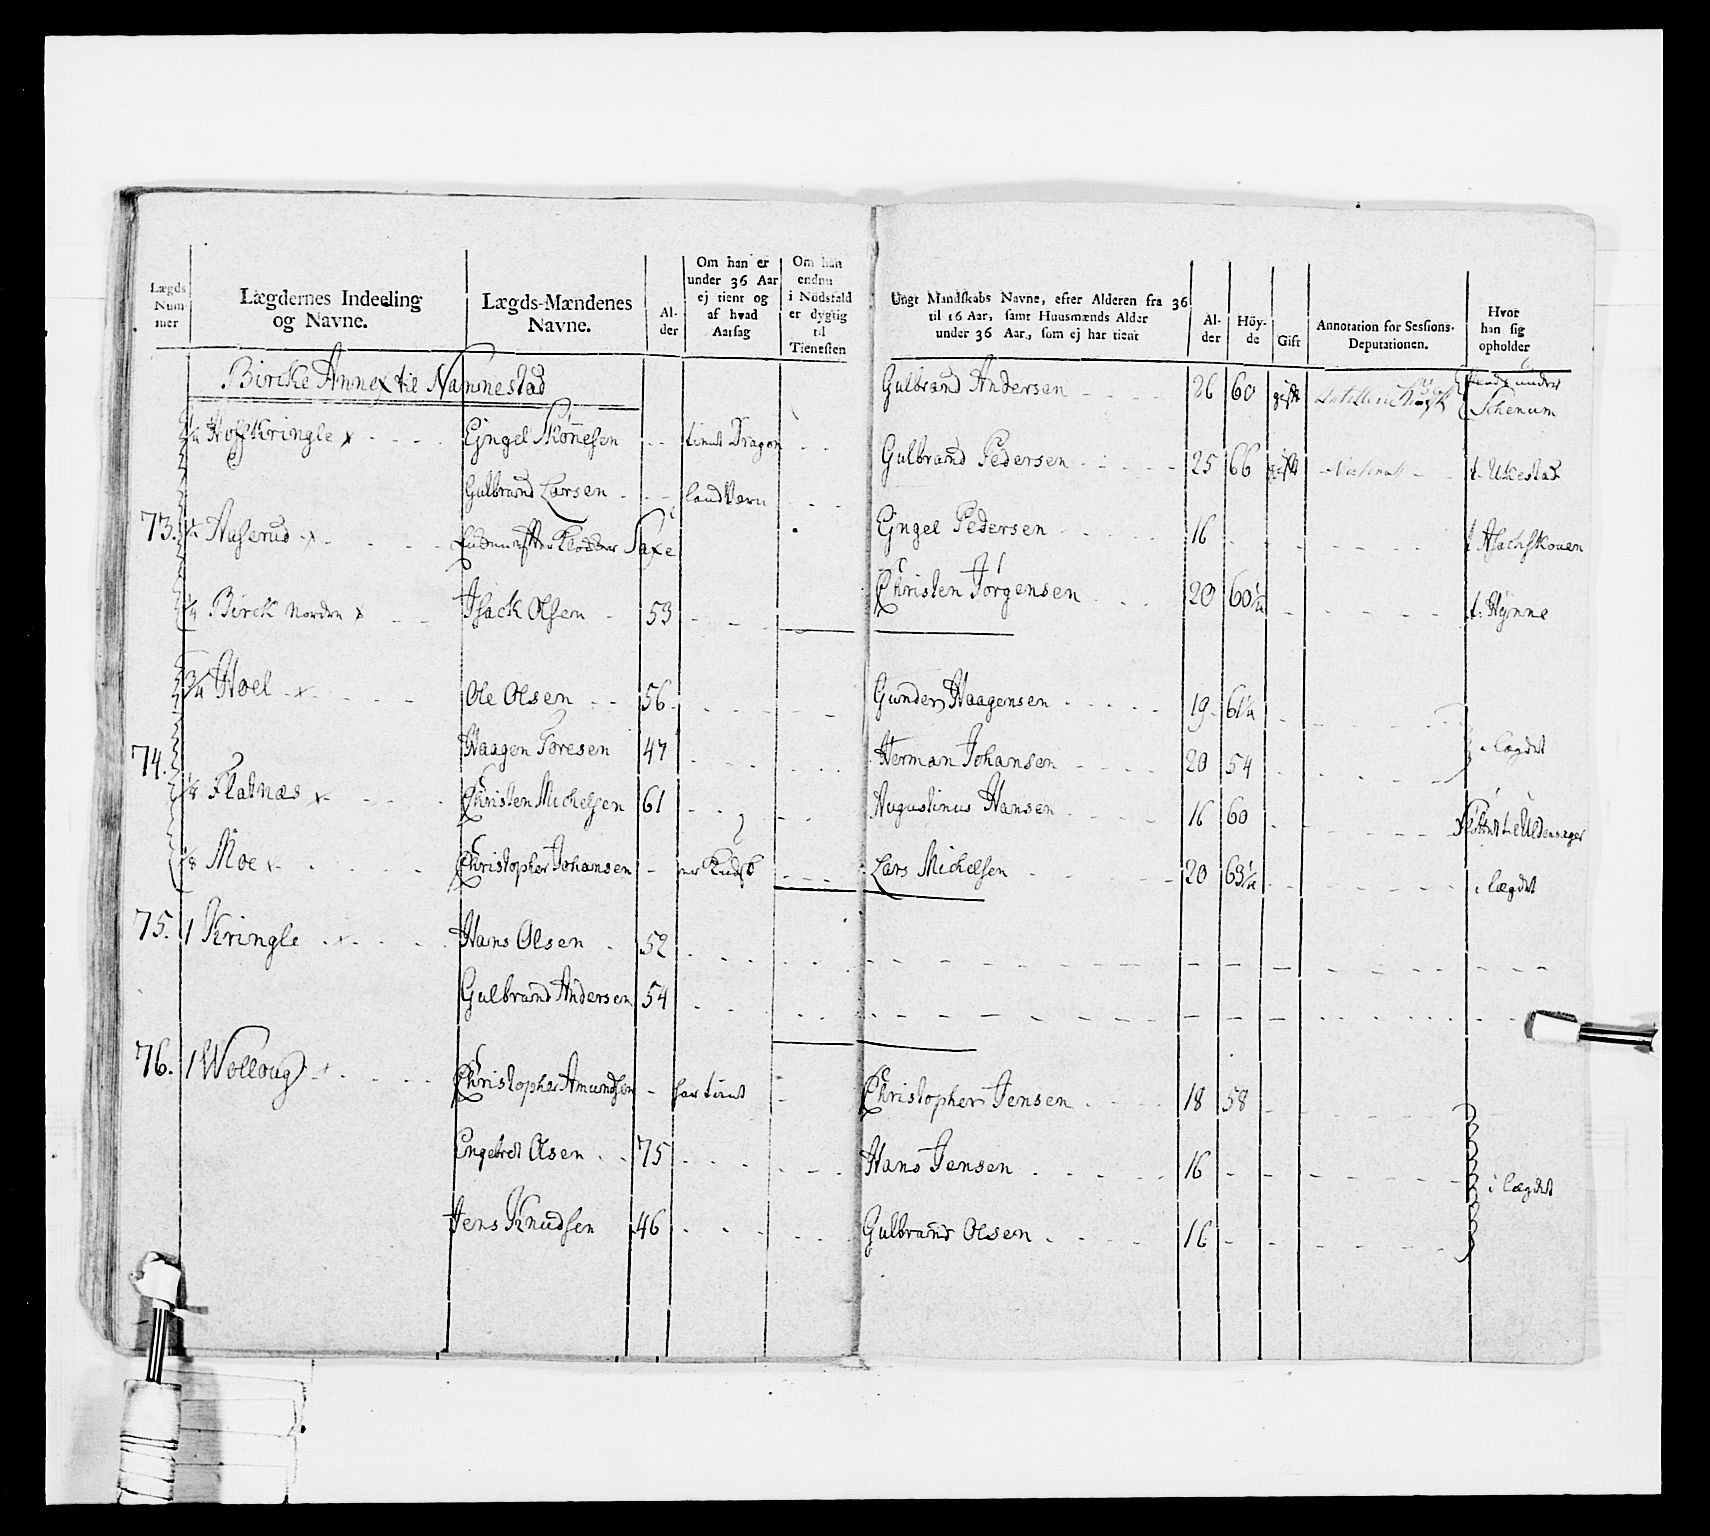 Lægds Nummer
Lægdernes Indeeling og Navne.
Lægds-Mændenes Navne.
Alder
Om han er under 36 Aar ej tient og af hvad Aarsag
Om han endnu i Nödsfald er dygtig til Tienesten
Ungt Mandskabs Navne, efter Alderen fra 36 til 16 Aar, samt Huusmænds Alder under 36 Aar, som ej har tient
Alder
Höyde
Gift
Annotation for Sessions-Deputationen.
Hvor han sig opholder
Bircke Annex til Nannestad
Gulbrand Andersen 26 60 gift under Schenum
Hoff Kringle x Ejngel tient Dragon
Gulbrand Pedersen 25 66 gift Ukestad
Gulbrand Larsen Land Værn
73. Auserud x
Ejngel Pedersen 16
1/4 Birck Nordre x Isack Olsen 53
Christen Jörgensen 20 60 1/2 Hynne
3/4 Hoel x Ole Olsen 56
Gunder Haagensen 19 61 1/4
74.
Haagen Toresen 47
Herman Johansen 20 54
i lægdet
1/8 Flatnæs x Christen Michelsen 61
Augustinus Hansen 16 60
1/8 Moe x Christopher Johansen
Lars Michelsen 20 63 1/2 i lægdet
75. 1 Kringle x Hans Olsen 52
Gulbrand Andersen 54
76. 1 Wolloug x Christopher Amundsen har tient
Christopher Jensen 18 58
Engebret Olsen 75
Hans Jensen 16 i lægdet
Jens Knudsen 46
Gulbrand Olsen 16